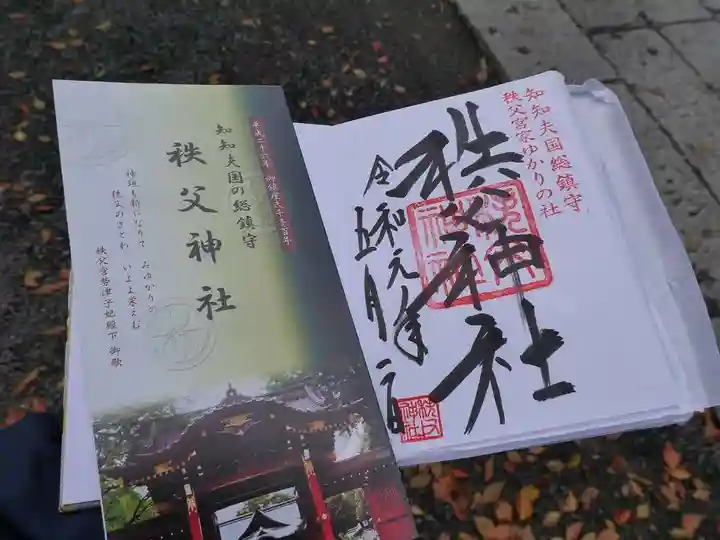 平成二十六年 御鎮座二千百年
知知夫国の総鎮守
秩父神社
神垣も新になりて みゆかりの
秩父のさとわ いよよ栄えむ
秩父宮勢津子妃殿下 御歌
知知夫国総鎮守
秩父宮家ゆかりの社
秩父神社
令和元年
五月二日
秩父
神社